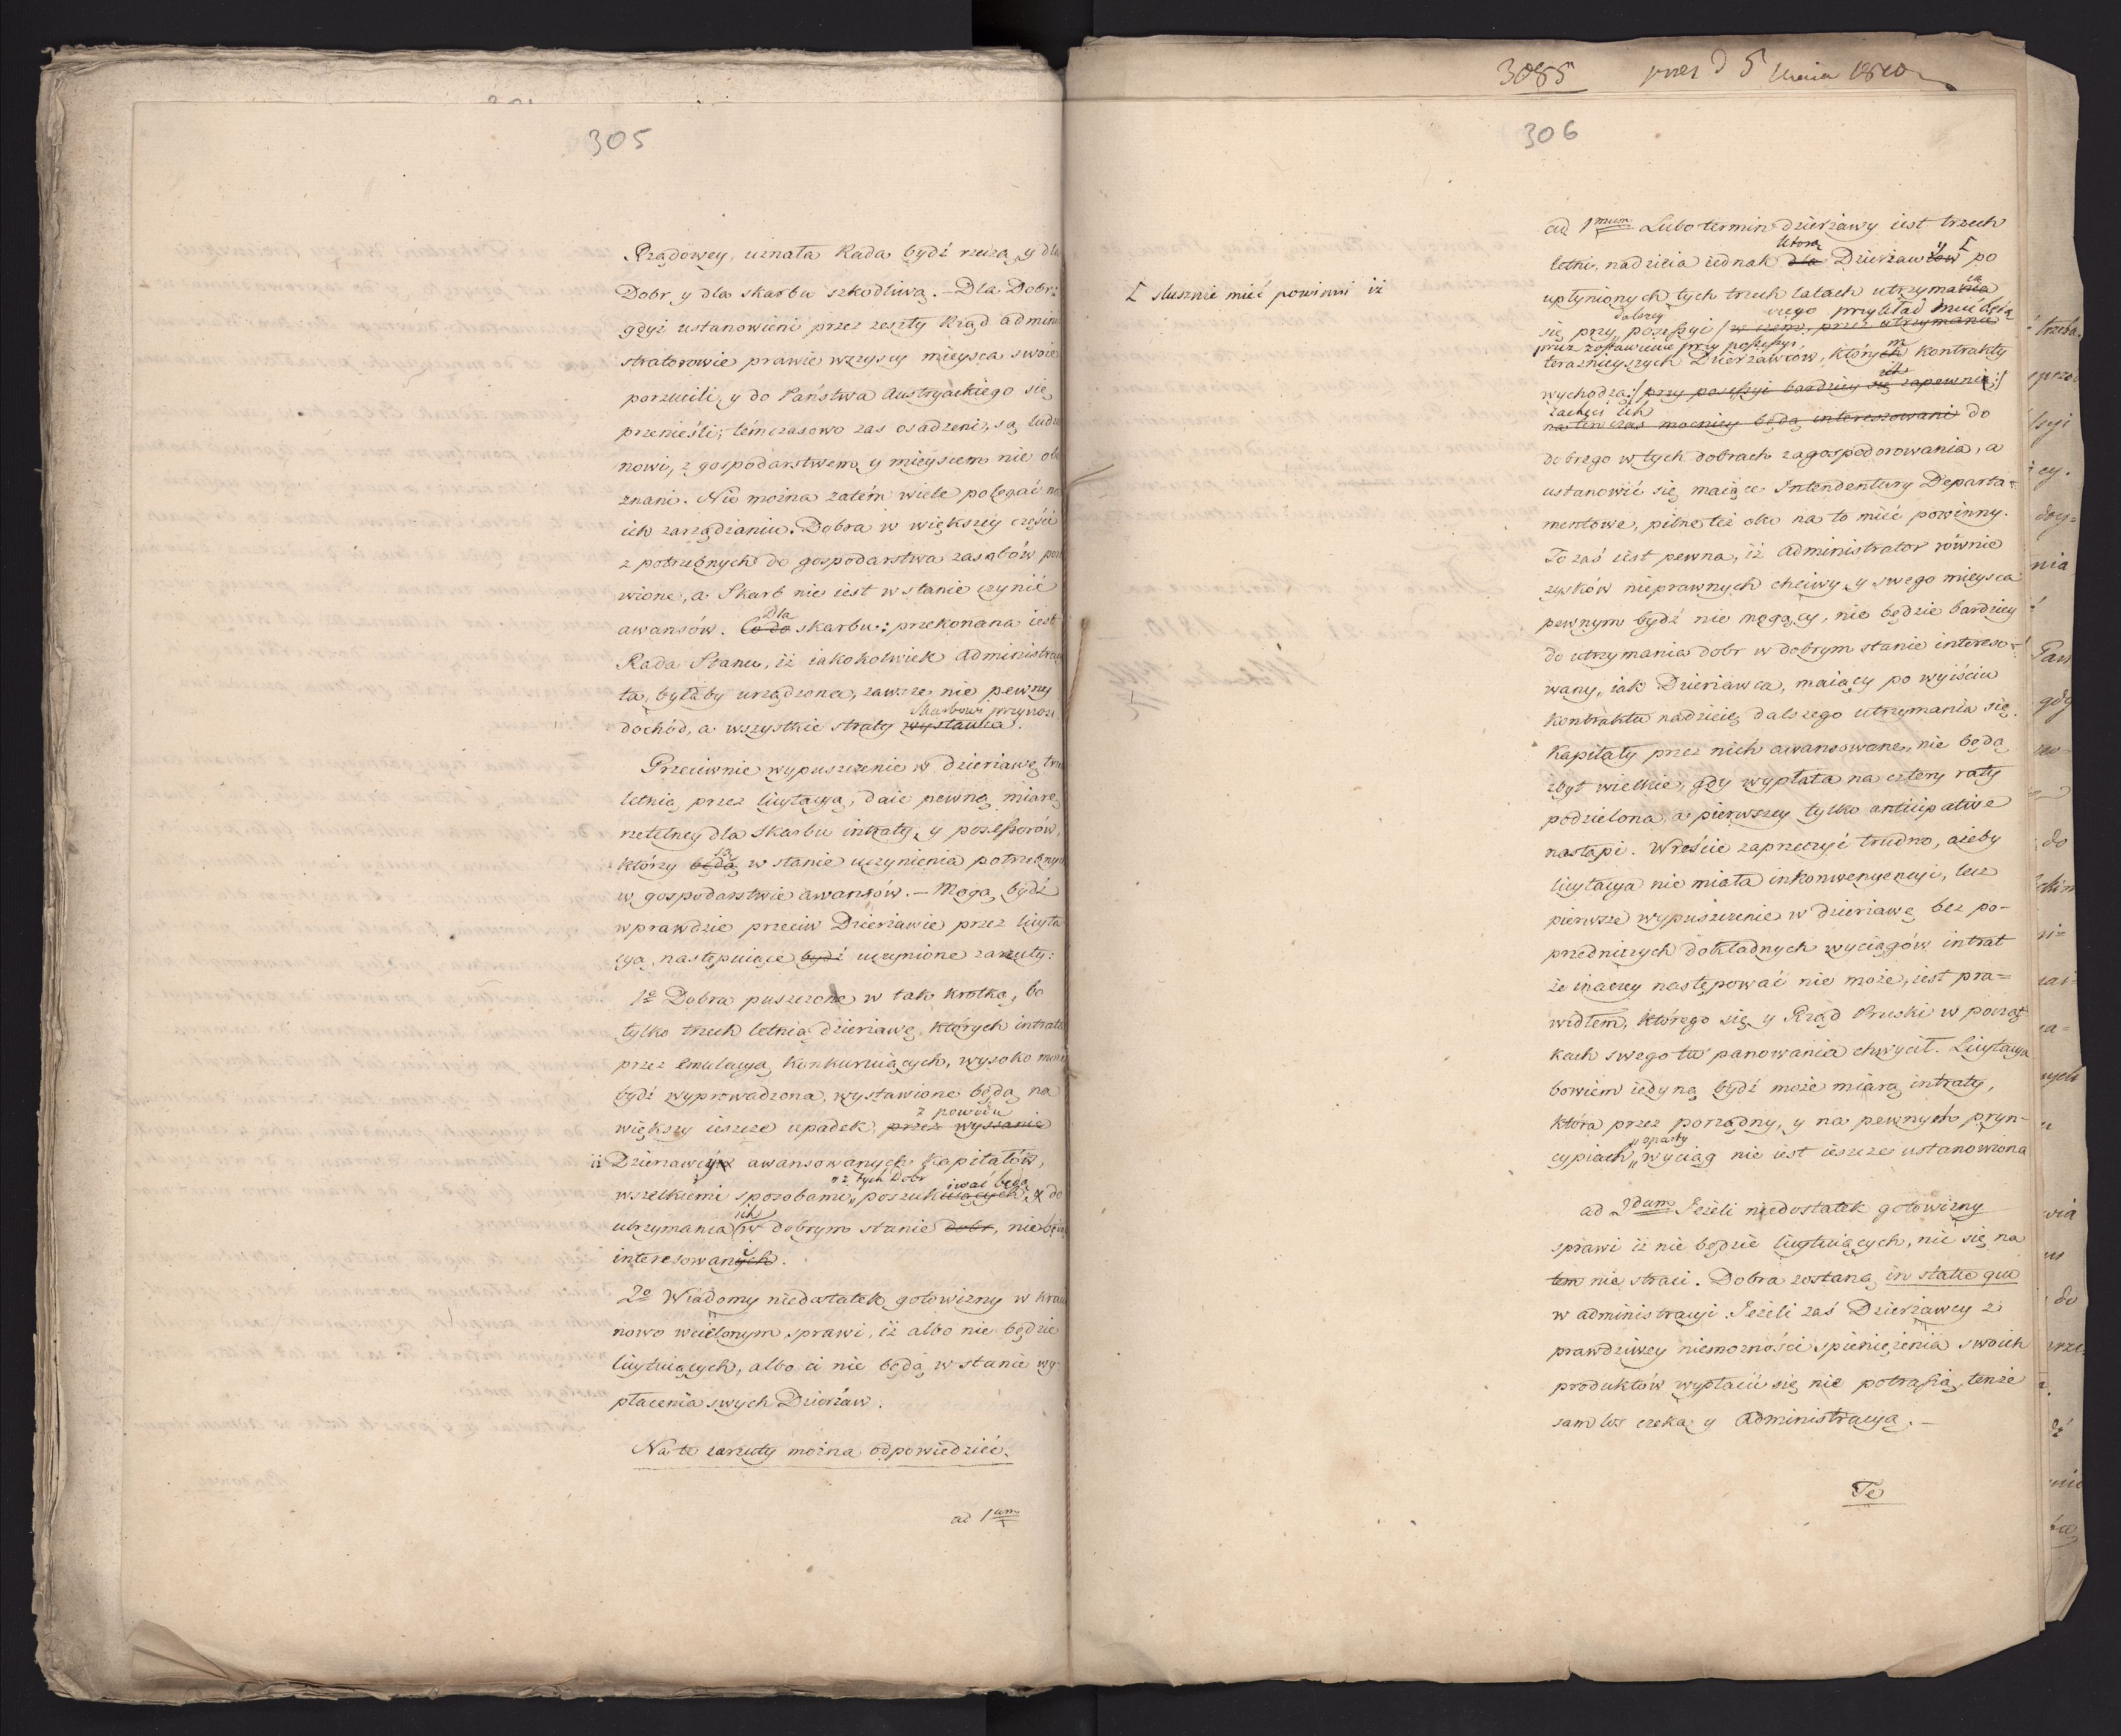 305
Rządowey, uznała Rada bydź rzeczą y dla
Dobr, y dla skarbu szkodliwą. – Dla Dobr:
gdyż ustanowieni przez zeszły Rząd admini
stratorowie prawie wszyscy mieysca swoie
porzucili, y do Państwa Austryackiego się
przenieśli; témczasowo zas osadzeni, są ludzie
nowi, z gospodarstwem y mieyscem nie obe
znani. Nie można zatém wiele polegać na
ich zarządzaniu. Dobra w większéy części
z potrzebnych do gospodarstwa zasobów poz
wione, a Skarb nie iest w stanie czynić
Dla
awansów. Co do skarbu: przekonana iest
Rada Stanu, iż iakokolwiek Administracya
ta, byłaby urządzona, zawsze nie pewny
Skarbowi przynosi
dochód, a wszystkie straty wystawia.
Przeciwnie wypuszczenie w dzierżawę trzech
letnią przez licytacyą, daie pewną miarę
rzetelney dla Skarbu intraty, y possessorów,
są
którzy będą w stanie uczynienia potrzebnych
w gospodarstwie awansów. – Mogą bydź
wprawdzie przeciw Dzierżawie przez licyta
cyą, następuiące bydź uczynione zarzuty:
1º Dobra puszczone w tak krotką, bo
tylko trzech letnią dzierżawę, których intrata
przez emulacyą konkuruiących, wysoko może
bydź wyprowadzona, wystawione będą na
z powodu
większy ieszcze upadek, przez wyssanie
iż Dzierżawcy awansowanych kapitałów,
"z tych Dobr iwać będą
wszelkiemi sposobami,, poszukuiących, y do
ich
utrzymania w dobrym stanie dobr, nie będą
i
interesowanych.
2º Wiadomy niedostatek gotowizny w kraiu
nowo wcielonym, sprawi, iż albo nie będzie
licytuiących, albo ci nie będą w stanie wy-
płacenia swych Dzierżaw.
Na te zarzuty można odpowiedzieć.
ad 1um
3085 5 Maia 1810
306
[ słusznie mieć powinni iż
ad 1mum Lubo termin dzierżawy iest trzech
którą y [
letni, nadzieia iednak dla Dzierżawców po
ią
upłynionych tych trzech latach utrzymania
dalszey czego przykład mieć będą
się przy possessyi /: w czem, przez utrzymanie
przez zostawienie przy possessyi m
teraźnieyszych Dzierżawców, których kontrakty
ich
wychodzą:/ przy possessyi bardziey się zapewnią;/
zachęci ich
na ten czas mocniey będą interessowani do
dobrego w tych dobrach zagospodorowania, a
ustanowić się maiące Intendentury Departa-
mentowe, pilne też oko na to mieć powinny.
To zaś iest pewna, iż administrator równie
zysków nieprawnych chciwy y swego mieysca
pewnym bydź nie mogący, nie będzie bardziey
do utrzymania dobr w dobrym stanie intereso-
wany, iak Dzierżawca, maiący po wyiściu
kontraktu nadzieię dalszego utrzymania się.
Kapitały przez nich awansowane, nie będą
zbyt wielkie, gdy wypłata na cztery raty
podzielona, a pierwszey tylko anticipative
nastąpi. Wreście zaprzeczyć trudno, ażeby
licytacya nie miała inkonweniencyi, lecz
pierwsze wypuszczenie w dzierżawę bez po-
przedniczych dokładnych wyciągów intrat
że inaczey następować nie może, iest pra=
widłem, którego się y Rząd Pruski w począt
kach swego tu panowania chwycił. Licytacya
bowiem iedyną bydź może miarą intraty,
która przez porządny, y na pewnych pryn-
,, oparty
cypiach,, wyciąg nie iest ieszcze ustanowiona
ad 2dum Jeżeli niedostatek gotowizny
sprawi iż nie będzie licytuiących, nic się na
tem nie straci. Dobra zostaną in statu quo
w administracyi. Jeżeli zaś Dzierżawcy z
prawdziwey niemożności spieniężenia swoich
produktów wypłacić się nie potrafią, tenże
sam los czeka y Administracyą. –
Te